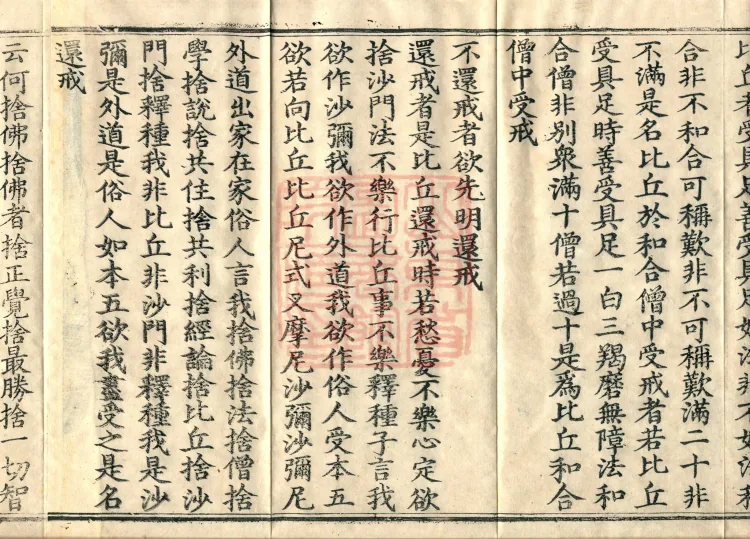 比丘若受具足善受具足如法非不如法和
合非不和合可稱歎非不可稱歎滿二十非
不滿是名比丘於和合僧中受戒者若比丘
受具足時善受具足一白三羯磨無障法和
合僧非別衆滿十僧若過十是爲比丘和合
僧中受戒
不還戒者欲先明還戒
還戒者是比丘還戒時若愁憂不樂心定欲
捨沙門法不樂行比丘事不樂釋種子言我
欲作沙彌我欲作外道我欲作俗人受本五
欲若向比丘比丘尼式叉摩尼沙彌沙彌尼
外道出家在家俗人言我捨佛捨法捨僧捨
學捨說捨共住捨共利捨經論捨比丘捨沙
門捨釋種我非比丘非沙門非釋種我是沙
彌是外道是俗人如本五欲我盡受之是名
還戒
云何捨佛捨佛者捨正覺捨最勝捨一切智